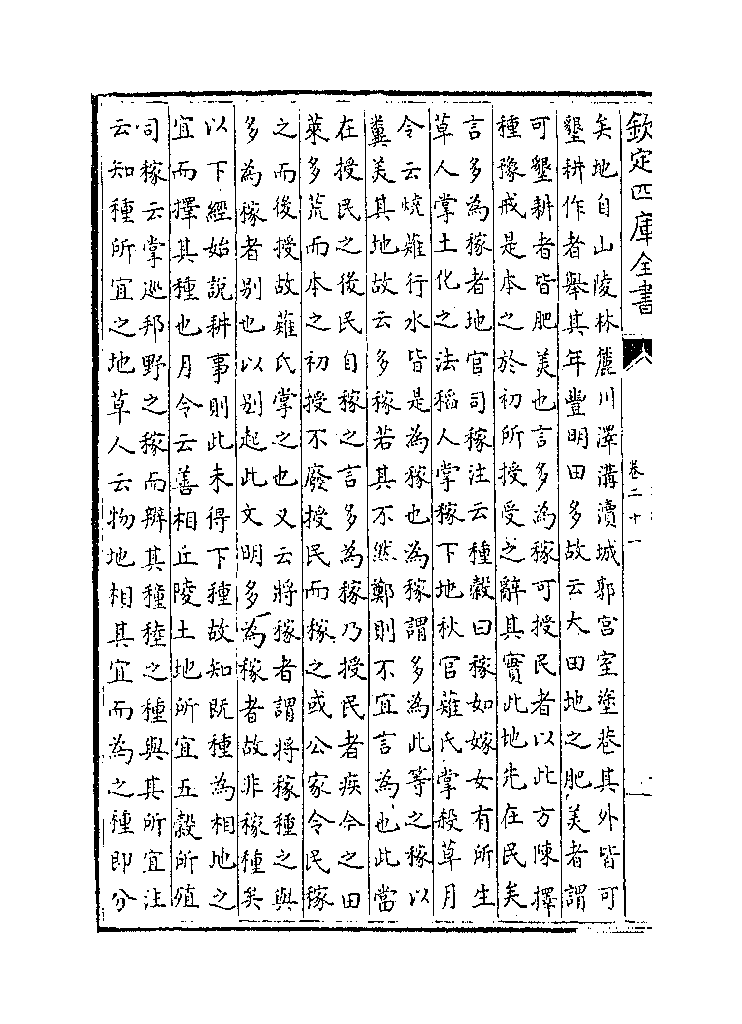 欽定四庫全書
卷二十一
矣地自山陵林麓川澤溝瀆城郭宮室塗巷其外皆可
墾耕作者舉其年豐明田多故云大田地之肥美者謂
可墾耕者皆肥美也言多為稼可授民者以此方陳擇
種豫戒是本之於初所授受之辭其實此地先在民矣
言多為稼者地官司稼注云種穀曰稼如嫁女有所生
草人掌土化之法稻人掌稼下地秋官薙氏掌殺草月
令云燒薙行水皆是為稼也為稼謂多為此等之稼以
糞美其地故云多稼若其不然鄭則不宜言為也此當
在授民之後民自稼之言多為稼乃授民者疾今之田
萊多荒而本之初授不廢授民而稼之或公家令民稼
之而後授故薙氏掌之也又云將稼者謂將稼種之與
多為稼者別也以別起此文明多為稼者故非稼種矣
以下經始說耕事則此未得下種故知既種為相地之
宜而擇其種也月令云善相丘陵土地所宜五穀所殖
司稼云掌巡邦野之稼而辨其種稑之種與其所宜注
云知種所宜之地草人云物地相其宜而為之種即分